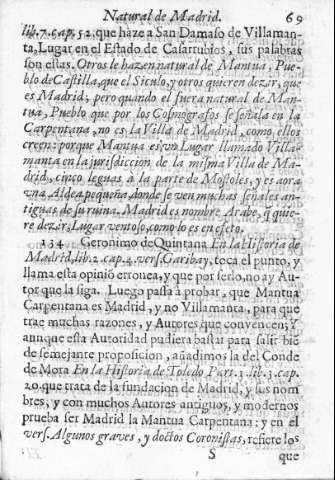 Natural de Madrid. 69
lib.7.cap.52.que haze a San Damaso de Villaman-
ta,Lugar en el Estado de Casarrubios, sus palabras
son estas. Otros le hazen natural de Mantua, Pue-
blo de Castilla,que el Siculo,y otros quieren dezir, que
es Madrid; pero quando el fuera natural de Man-
tua, Pueblo que por los Cosmografos se señala en la
Carpentana, no es la Villa de Madrid, como ellos
creen: porque Mantua es un Lugar llamado Villa-
manta en la jurisdicion de la misma Villa de Ma-
drid, cinco leguas a la parte de Mostoles, y es aora
vna Aldea pequeña, donde se ven muchas señales an-
tiguas de su ruina. Madrid es nombre Arabe, q quie-
re dezir, Lugar ventoso, como lo es en efeto.
134. Geronimo de Quintana En la Historia de
Madrid, lib.2.cap.2.vers.Garibay, toca el punto, y
llama esta opinió erronea, y que por serlo, no ay Au-
tor que la siga. Luego passa à probar, que Mantua
Carpentana es Madrid, y no Villamanta, para que
trae muchas razones, y Autores que convencen; Y
aunque esta Autoridad pudiera bastar para salir bié
de semejante proposicion, añadimos la del Conde
de Mora En la Historia de Toledo Part.1.lib.3.cap.
20.que trata de la fundacion de Madrid, y sus nom
bres, y con muchos Autores antiguos, y modernos
prueba ser Madrid la Mantua Carpentana; y en el
vers. Algunos graves, y doctos Coronistas, refiere los
S que